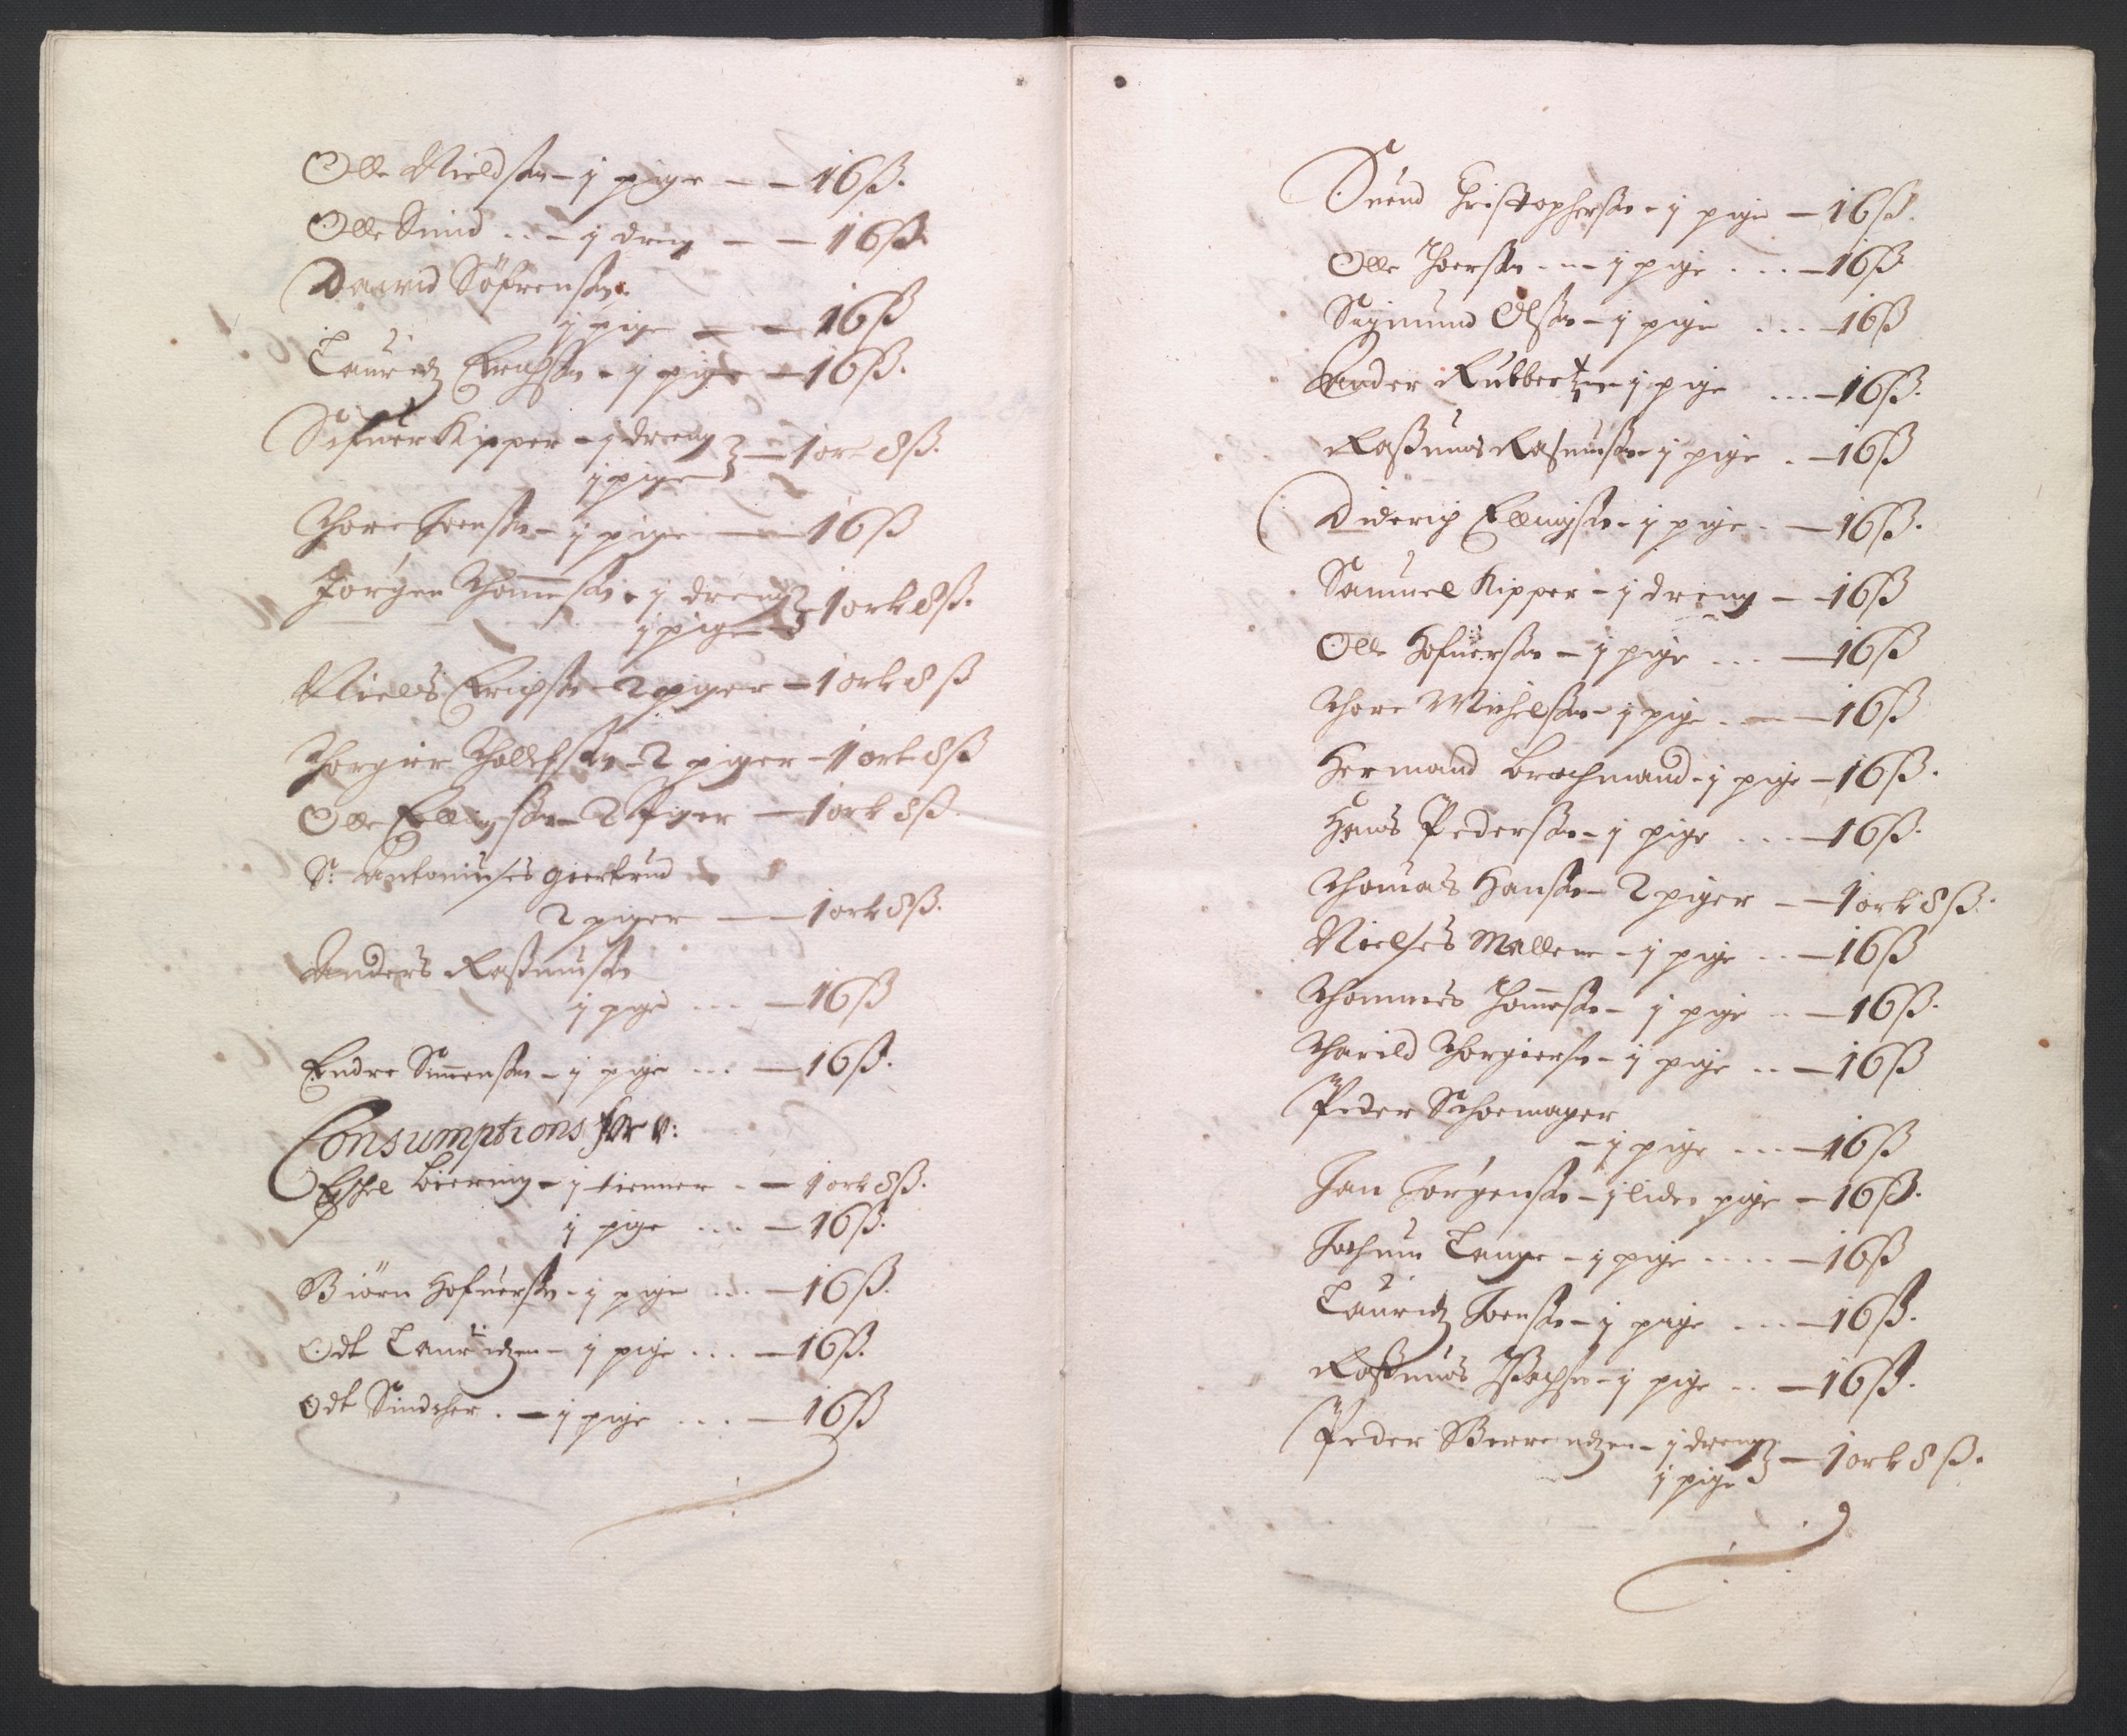 Olle Nieldsen – j pige – – 16 ß.
Olle Smid .. – j dreng – – 16 ß.
Dawid Söfrensen
j pige – – 16 ß
Lauridz Erichsen – j pige – 16 ß.
Sifuer Kipper – j dreng
j pige – 1 ort 8 ß.
Thore Joensen – j pige – 16 ß
Jørgen Thommesen – j dreng
j pige – 1 ort 8 ß.
Niels Erichsen – 2 piger – 1 ort 8 ß
Thorgier Tholefsen – 2 piger – 1 ort 8 ß
Olle Ellingsen – 2 Piger – 1 ort 8 ß.
Sr. Antoniuses Giertrud
2 piger – 1 ort 8 ß.
Anders Rasmusen
j pige ... – 16 ß
Endre Simensen – j pige ... – 16 ß.
Consumptions
Eschel Biering – j tienner – – 1 ort 8 ß.
j pige ... – 16 ß.
Biörn Hofuersen – j pige ... – 16 ß.
Odt Lauridzen – j pige ... – 16 ß.
Odt Snidcher . – j pige ... – 16 ß
Suend Christophersen – j pige – 16 ß.
Olle Thoersen – – j pige ... – 16 ß
Sigmund Olsen – j pige ... – 16 ß
Ander Rubbertzen – j pige ... – 16 ß.
Rasmus Rasmusen – j pige . – 16 ß
Diderich Ellingsen – j pige – – 16 ß.
Samuel Kipper – j dreng – – 16 ß
Olle Hofuersen – j pige ... – 16 ß
Thore Michelsen – j pige . – – 16 ß
Hermand Brochmand – j pige – 16 ß.
Hans Pedersen – j pige ... – 16 ß.
Thomas Hansen – 2 piger – – 1 ort 8 ß.
Nielses Mallene – j pige .. – 16 ß
Thommes Thomesen – j pige .. – 16 ß.
Tharild Thorgiersen – j pige .. – 16 ß
Peder Schoemager
– j pige ... – 16 ß
Jan Jørgensen – j liden pige – 16 ß.
Jochum Lange – j pige .... – 16 ß
Lauridz Joensen – j pige ... – 16 ß.
Rasmus Isachsen – j pige .. – 16 ß.
Peder Berrendzen – j dreng
j pige – 1 ort 8 ß.